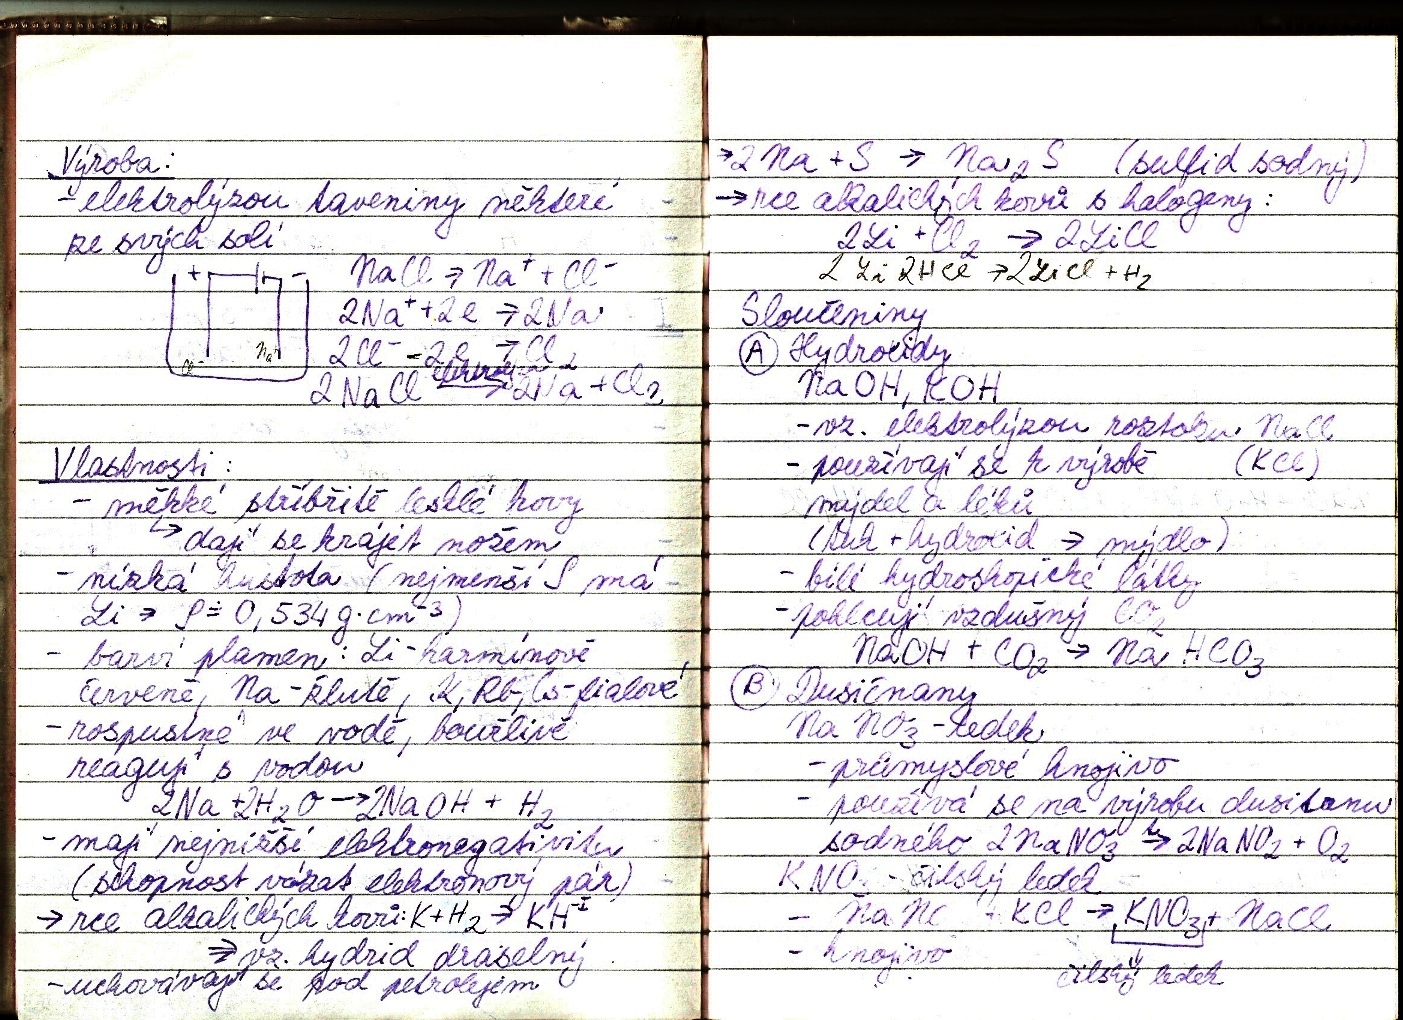 Výroba:
- elektrolýzou taveniny některé
ze svých solí
+ -
NaCl → Na⁺ + Cl⁻
2Na⁺ + 2e → 2Na
2Cl⁻ - 2e → Cl₂
Cl⁻ Na⁺
2NaCl → 2Na + Cl₂
Vlastnosti:
- měkké stříbřitě lesklé kovy
↳ dají se krájet nožem
- nízká hustota (nejmenší ρ má
Li → ρ ≐ 0,534 g·cm⁻³)
- barví plamen: Li - karmínově
červeně, Na - žlutě, K, Rb, Cs - fialově
- rozpustné ve vodě, bouřlivě
reagují s vodou
2Na + 2H₂O → 2NaOH + H₂
- mají nejnižší elektronegativitu
(schopnost vázat elektronový pár)
→ rce alkalických kovů: K + H₂ → KH⁻ᴵ
⇒ vz. hydrid draselný
- uchovávají se pod petrolejem
→ 2Na + S → Na₂S (sulfid sodný)
→ rce alkalických kovů s halogeny:
2Li + Cl₂ → 2LiCl
2Li 2HCl → 2LiCl + H₂
Sloučeniny
(A) Hydroxidy
NaOH, KOH
- vz. elektrolýzou roztoku NaCl
- používají se k výrobě (KCl)
mýdel a léků
(tuk + hydroxid → mýdlo)
- bílé hydroskopické látky
- pohlcují vzdušný CO₂
NaOH + CO₂ → NaHCO₃
(B) Dusičnany
NaNO₃ - ledek
- průmyslové hnojivo
- používá se na výrobu dusitanu
sodného 2NaNO₃ → 2NaNO₂ + O₂
KNO₃ - čilský ledek
- + KCl → KNO₃ + NaCl
- hnojivo
čilský ledek